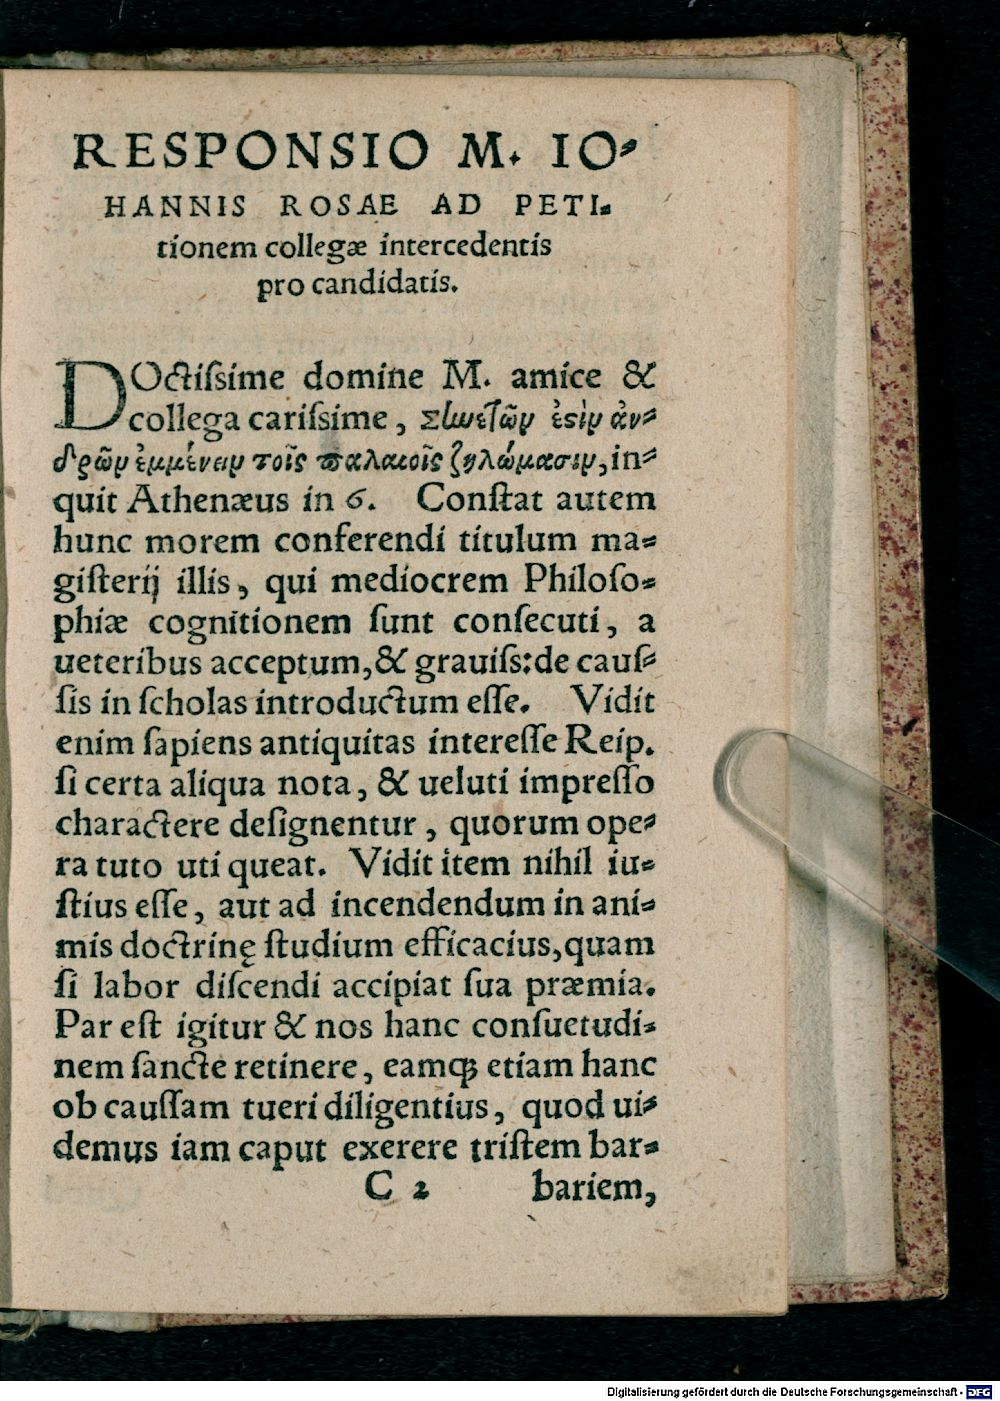 RESPONSIO M. IO-
HANNIS ROSAE AD PETI-
tionem collegæ intercedentis
pro candidatis.
DOctiſsime domine M. amice &
collega cariſsime, συνετῶν ἐστὶν ἀν-
δρῶν ἐμμένειν τοῖς παλαιοῖς ζηλώμασιν, in-
quit Athenæus in 6. Conſtat autem
hunc morem conferendi titulum ma-
giſterij illis, qui mediocrem Philoſo-
phiæ cognitionem ſunt conſecuti, a
ueteribus acceptum, & grauiſs: de cauſ-
ſis in ſcholas introductum eſſe. Vidit
enim ſapiens antiquitas intereſſe Reip.
ſi certa aliqua nota, & ueluti impreſſo
charactere deſignentur, quorum ope-
ra tuto uti queat. Vidit item nihil iu-
ſtius eſſe, aut ad incendendum in ani-
mis doctrinę ſtudium efficacius, quam
ſi labor diſcendi accipiat ſua præmia.
Par eſt igitur & nos hanc conſuetudi-
nem ſancte retinere, eamqꝫ etiam hanc
ob cauſſam tueri diligentius, quod ui-
demus iam caput exerere triſtem bar-
C 2 bariem,
Digitalisierung gefördert durch die Deutsche Forschungsgemeinschaft - DFG